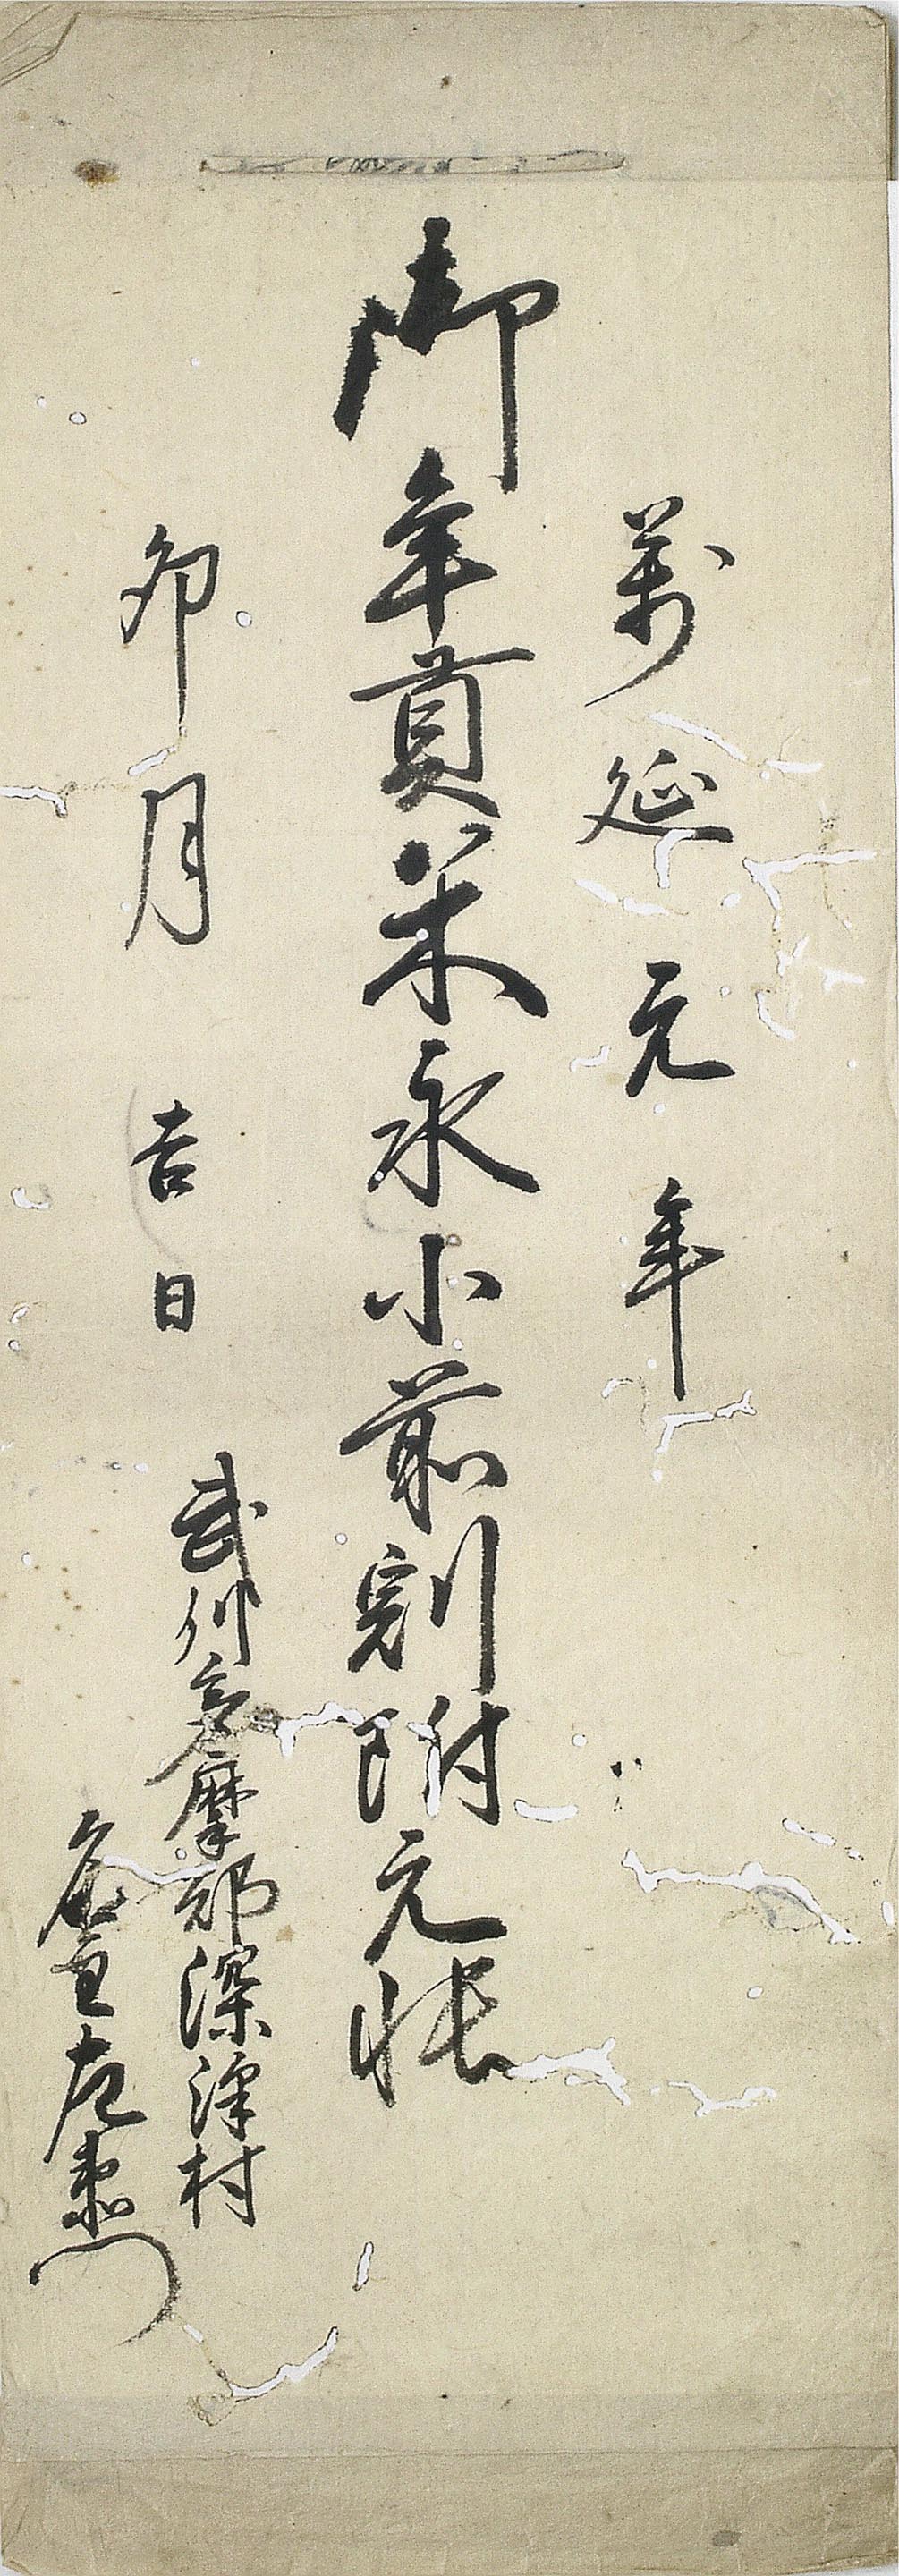 萬延元年
御年貢米永小前割附元帳
卯月吉日
武州多摩郡深澤村
名主左衛門